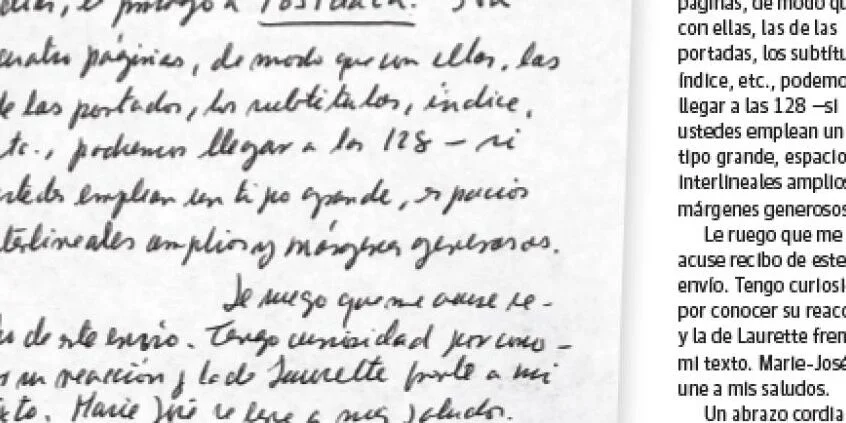 prólogo a Postdata.
páginas, de modo que con ellas, las
de las portadas, los subtítulos, índice,
etc., podemos llegar a las 128 — si
ustedes emplean un tipo grande, espacios
interlineales amplios y márgenes generosos.
Le ruego que me acuse re-
de este envío. Tengo curiosidad por cono-
su reacción y la de Laurette frente a mi
texto. Marie José se une a mis saludos.
páginas, de modo qu
con ellas, las de las
portadas, los subtítu
índice, etc., podemo
llegar a las 128 —si
ustedes emplean un
tipo grande, espacio
interlineales amplios
márgenes generosos
Le ruego que me
acuse recibo de este
envío. Tengo curiosi
por conocer su reacc
y la de Laurette fren
mi texto. Marie-José
une a mis saludos.
Un abrazo cordia